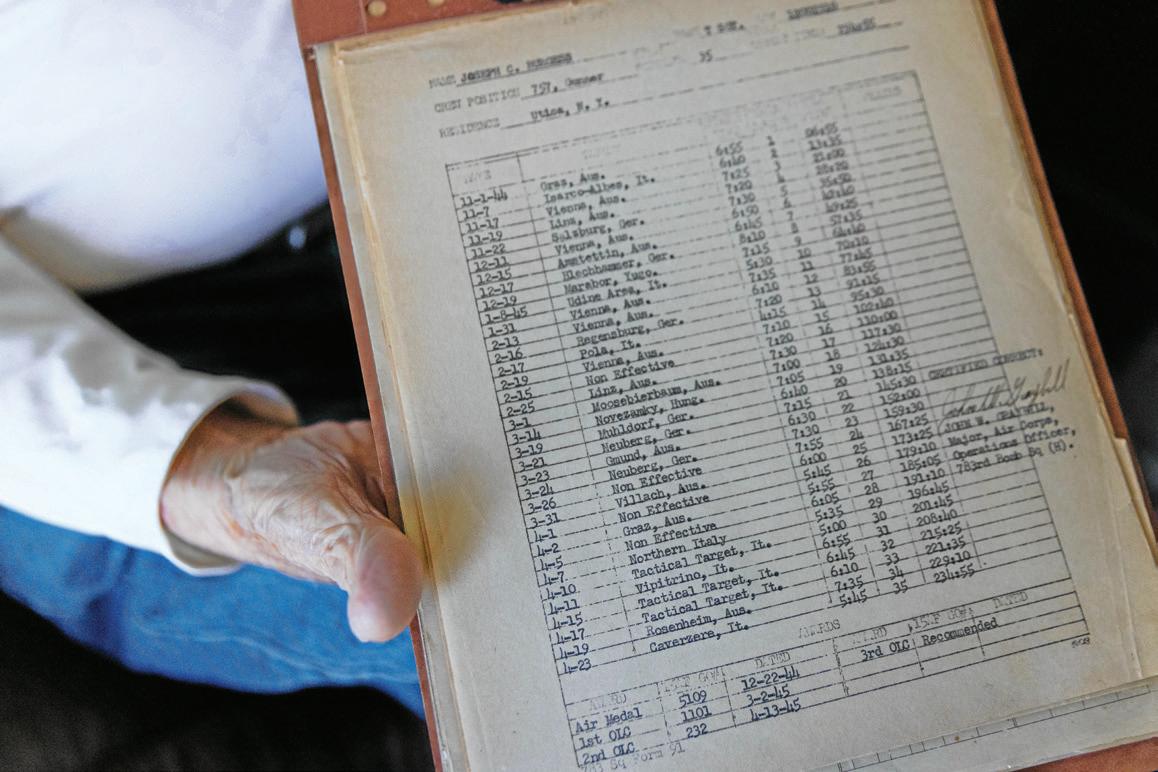 NAME JOSEPH C. BURGESS
CREW POSITION 757, Gunner 35
RESIDENCE Utica, N. Y.
DATE
11-1-44 Graz, Aus. 6:55 1 06:55
11-7 Isarco-Albes, It. 6:40 2 13:35
11-17 Vienna, Aus. 7:25 3 21:00
11-19 Linz, Aus. 7:20 4 28:20
11-22 Salzburg, Ger. 7:30 5 35:50
12-11 Vienna, Aus. 6:50 6 42:40
12-15 Amstettin, Aus. 6:45 7 49:25
12-17 Blechhammer, Ger. 8:10 8 57:35
12-19 Marabor, Yugo. 7:15 9 64:40
1-8-45 Udine Area, It. 5:30 10 70:10
1-31 Vienna, Aus. 7:35 11 77:45
2-13 Vienna, Aus. 6:10 12 83:55
2-16 Regensburg, Ger. 7:20 13 91:15
2-17 Pola, It. 4:15 14 95:30
2-19 Vienna, Aus. 7:10 15 102:40
2-15 Non Effective 7:20 16 110:00
2-25 Linz, Aus. 7:30 17 117:30
3-1 Moosebierbaum, Aus. 7:00 18 124:30
3-14 Novezamky, Hung. 7:05 19 131:35
3-19 Muhldorf, Ger. 6:40 20 138:15
3-21 Neuberg, Ger. 7:15 21 145:30
3-23 Gmund, Aus. 6:30 22 152:00
3-24 Neuberg, Ger. 7:30 23 159:30
3-26 Non Effective 7:55 24 167:25
3-31 Villach, Aus. 6:00 25 173:25
4-1 Non Effective 5:45 26 179:10
4-2 Graz, Aus. 5:55 27 185:05
4-5 Non Effective 6:05 28 191:10
4-7 Northern Italy 5:35 29 196:45
4-10 Tactical Target, It. 5:00 30 201:45
4-11 Vipitrino, It. 6:55 31 208:40
4-15 Tactical Target, It. 6:45 32 215:25
4-17 Tactical Target, It. 6:10 33 221:35
4-19 Rosenheim, Aus. 7:35 34 229:10
4-23 Caverzere, It. 5:45 35 234:55
CERTIFIED CORRECT:
JOHN W. GRAYBILL,
Major, Air Corps,
Operations Officer,
783rd Bomb Sq (H).
AWARDS
AWARD 15AF GO# DATED AWARD 15AF GO# DATED
Air Medal 5109 12-22-44 3rd OLC Recommended
1st OLC 1101 3-2-45
2nd OLC 232 4-13-45
783 Sq Form 91